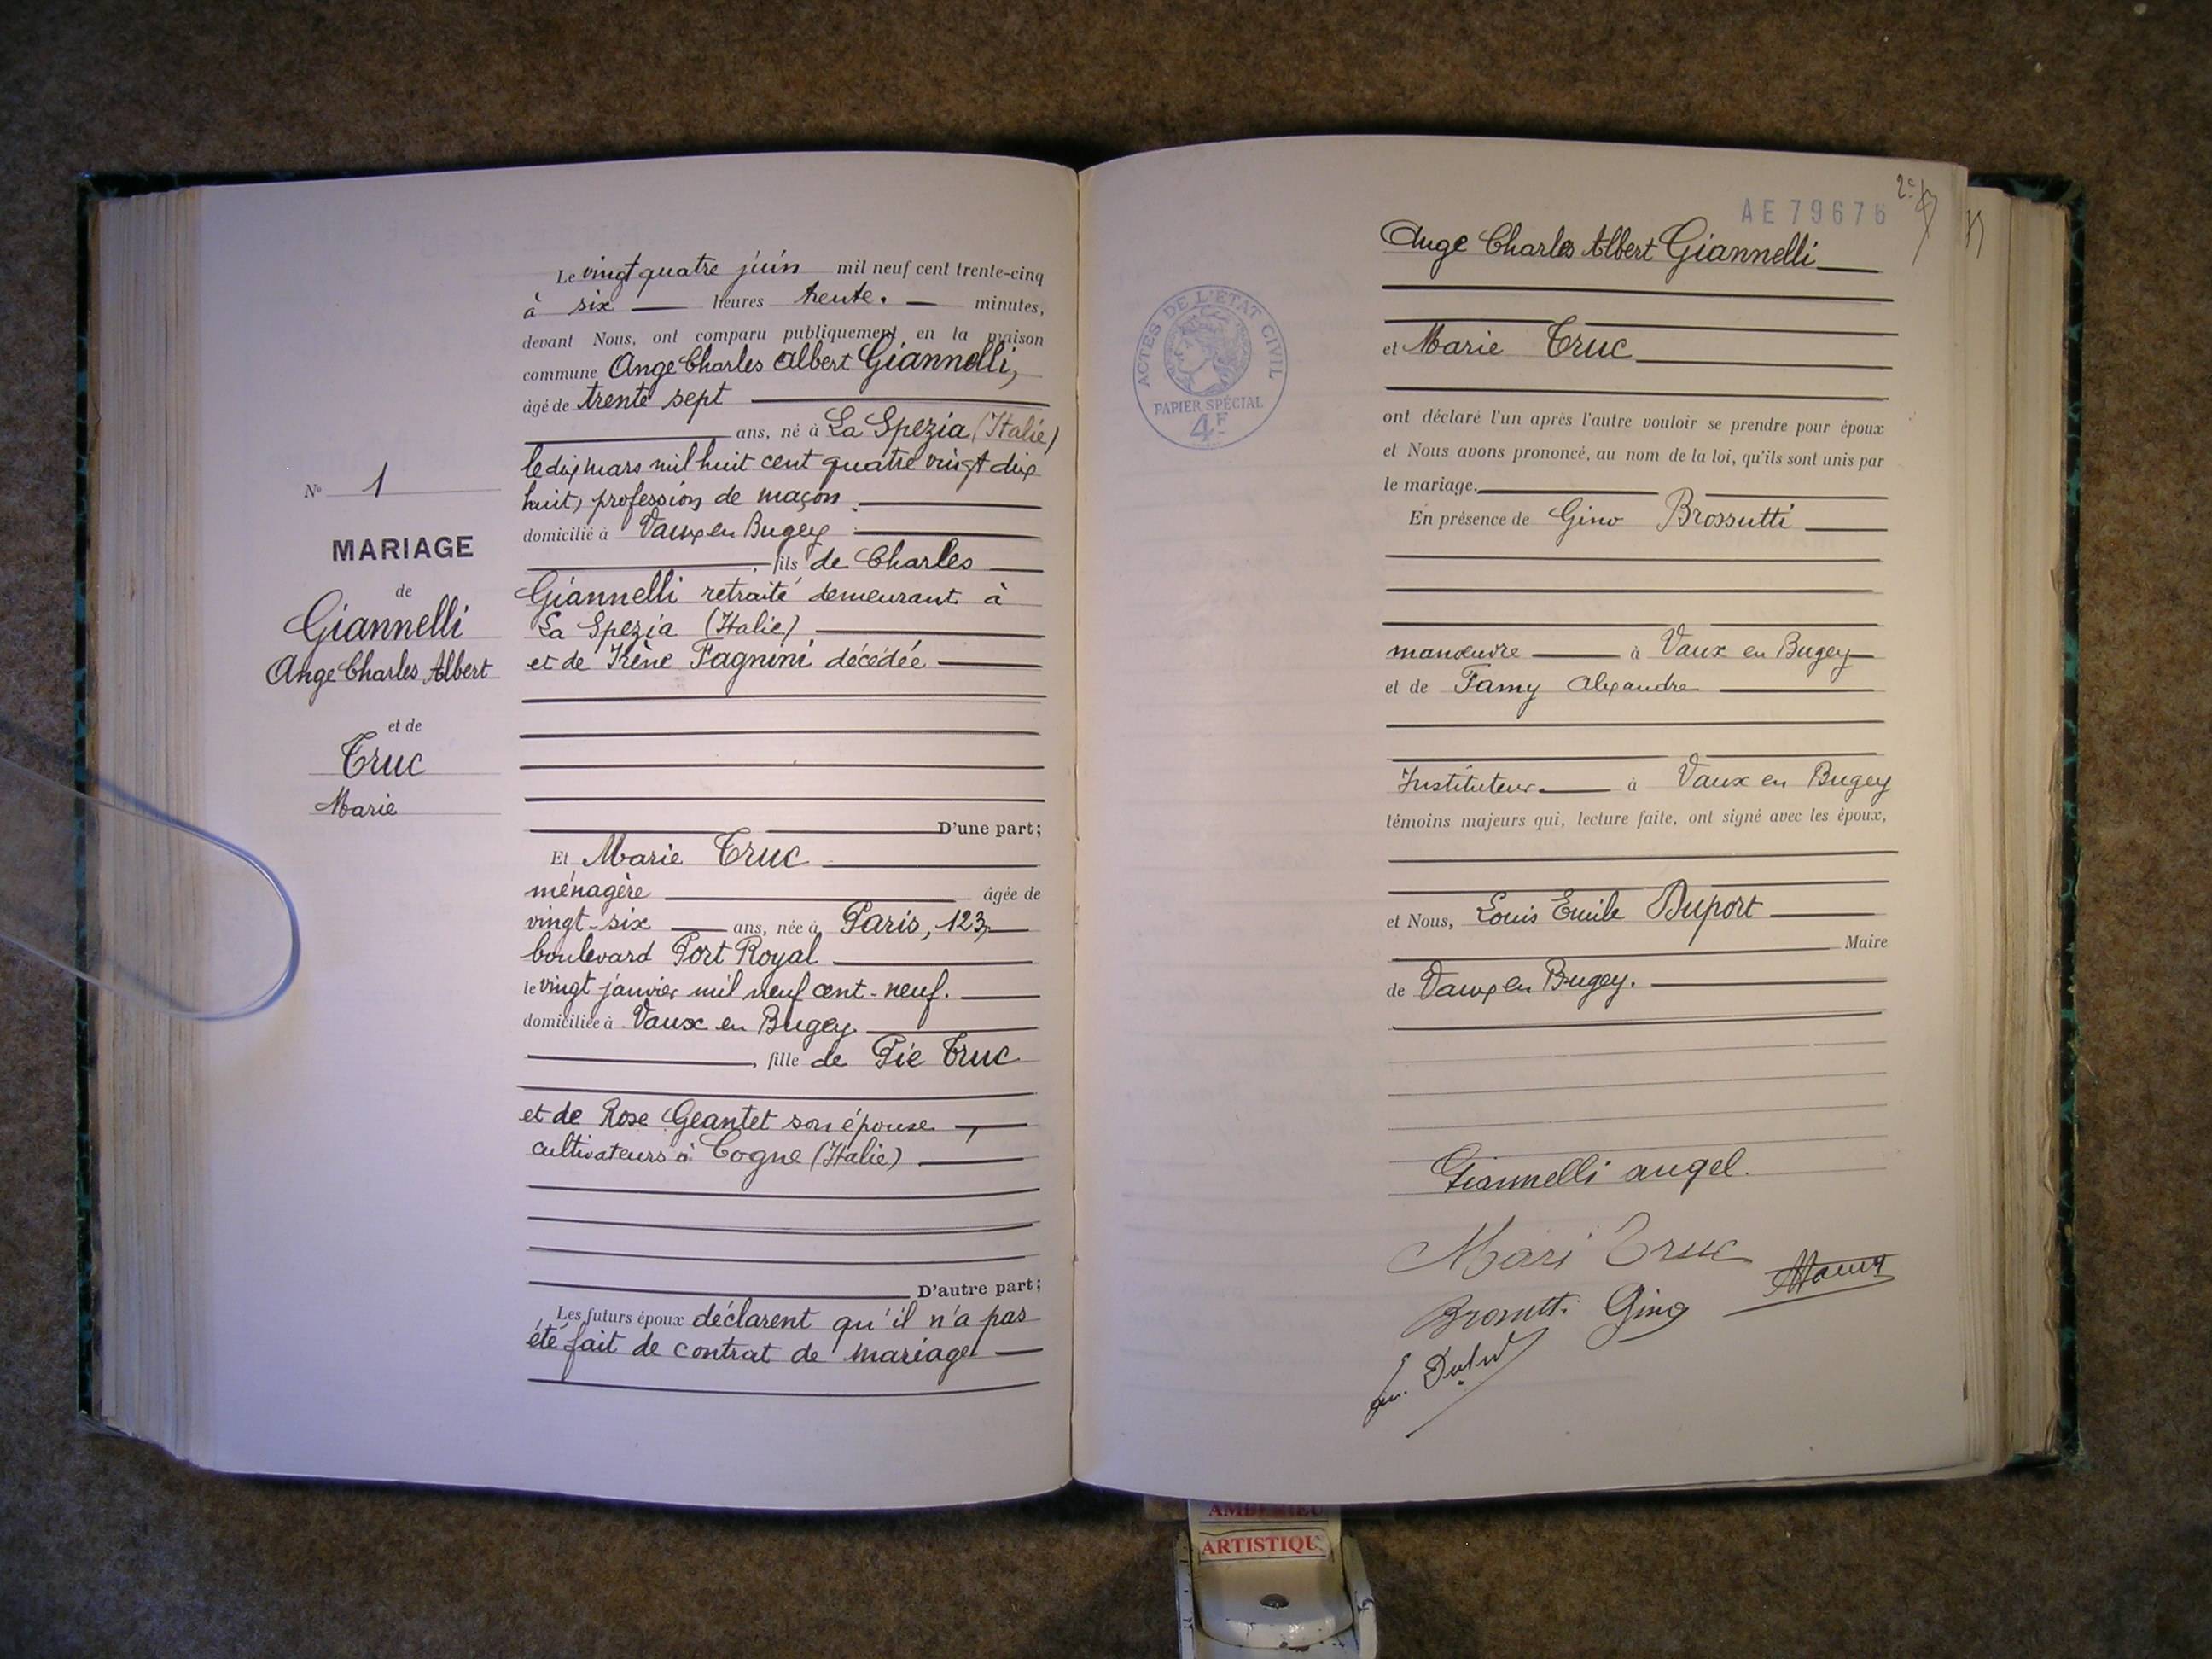 N° 1
MARIAGE
de
Giannelli
Ange Charles Albert
et de
Truc
Marie
Le vingt quatre juin mil neuf cent trente-cinq
à six heures trente. minutes,
devant Nous, ont comparu publiquement en la maison
commune Ange Charles Albert Giannelli,
âgé de trente sept
ans, né à La Spezia (Italie)
le dix mars mil huit cent quatre vingt dix
huit, profession de maçon
domicilié à Vaux en Bugey
, fils de Charles
Giannelli retraité demeurant à
La Spezia (Italie)
et de Irène Fagnini décédée
D'une part;
Et Marie Truc
ménagère âgée de
vingt-six ans, née à Paris, 123,
boulevard Port Royal
le vingt janvier mil neuf cent-neuf.
domiciliée à Vaux en Bugey
, fille de Pie Truc
et de Rose Geantet son épouse,
cultivateurs à Cogne (Italie)
D'autre part;
Les futurs époux déclarent qu'il n'a pas
été fait de contrat de mariage
AE 79676
ACTES DE L'ÉTAT CIVIL
PAPIER SPÉCIAL
4F
Ange Charles Albert Giannelli
et Marie Truc
ont déclaré l'un après l'autre vouloir se prendre pour époux
et Nous avons prononcé, au nom de la loi, qu'ils sont unis par
le mariage.
En présence de Gino Brossutti
manœuvre à Vaux en Bugey
et de Famy Alexandre
Instituteur à Vaux en Bugey
témoins majeurs qui, lecture faite, ont signé avec les époux,
et Nous, Louis Emile Duport
Maire
de Vaux en Bugey.
Giannelli angel.
Mari Truc
Brossutti Gino
AMBERIEU
ARTISTIQU